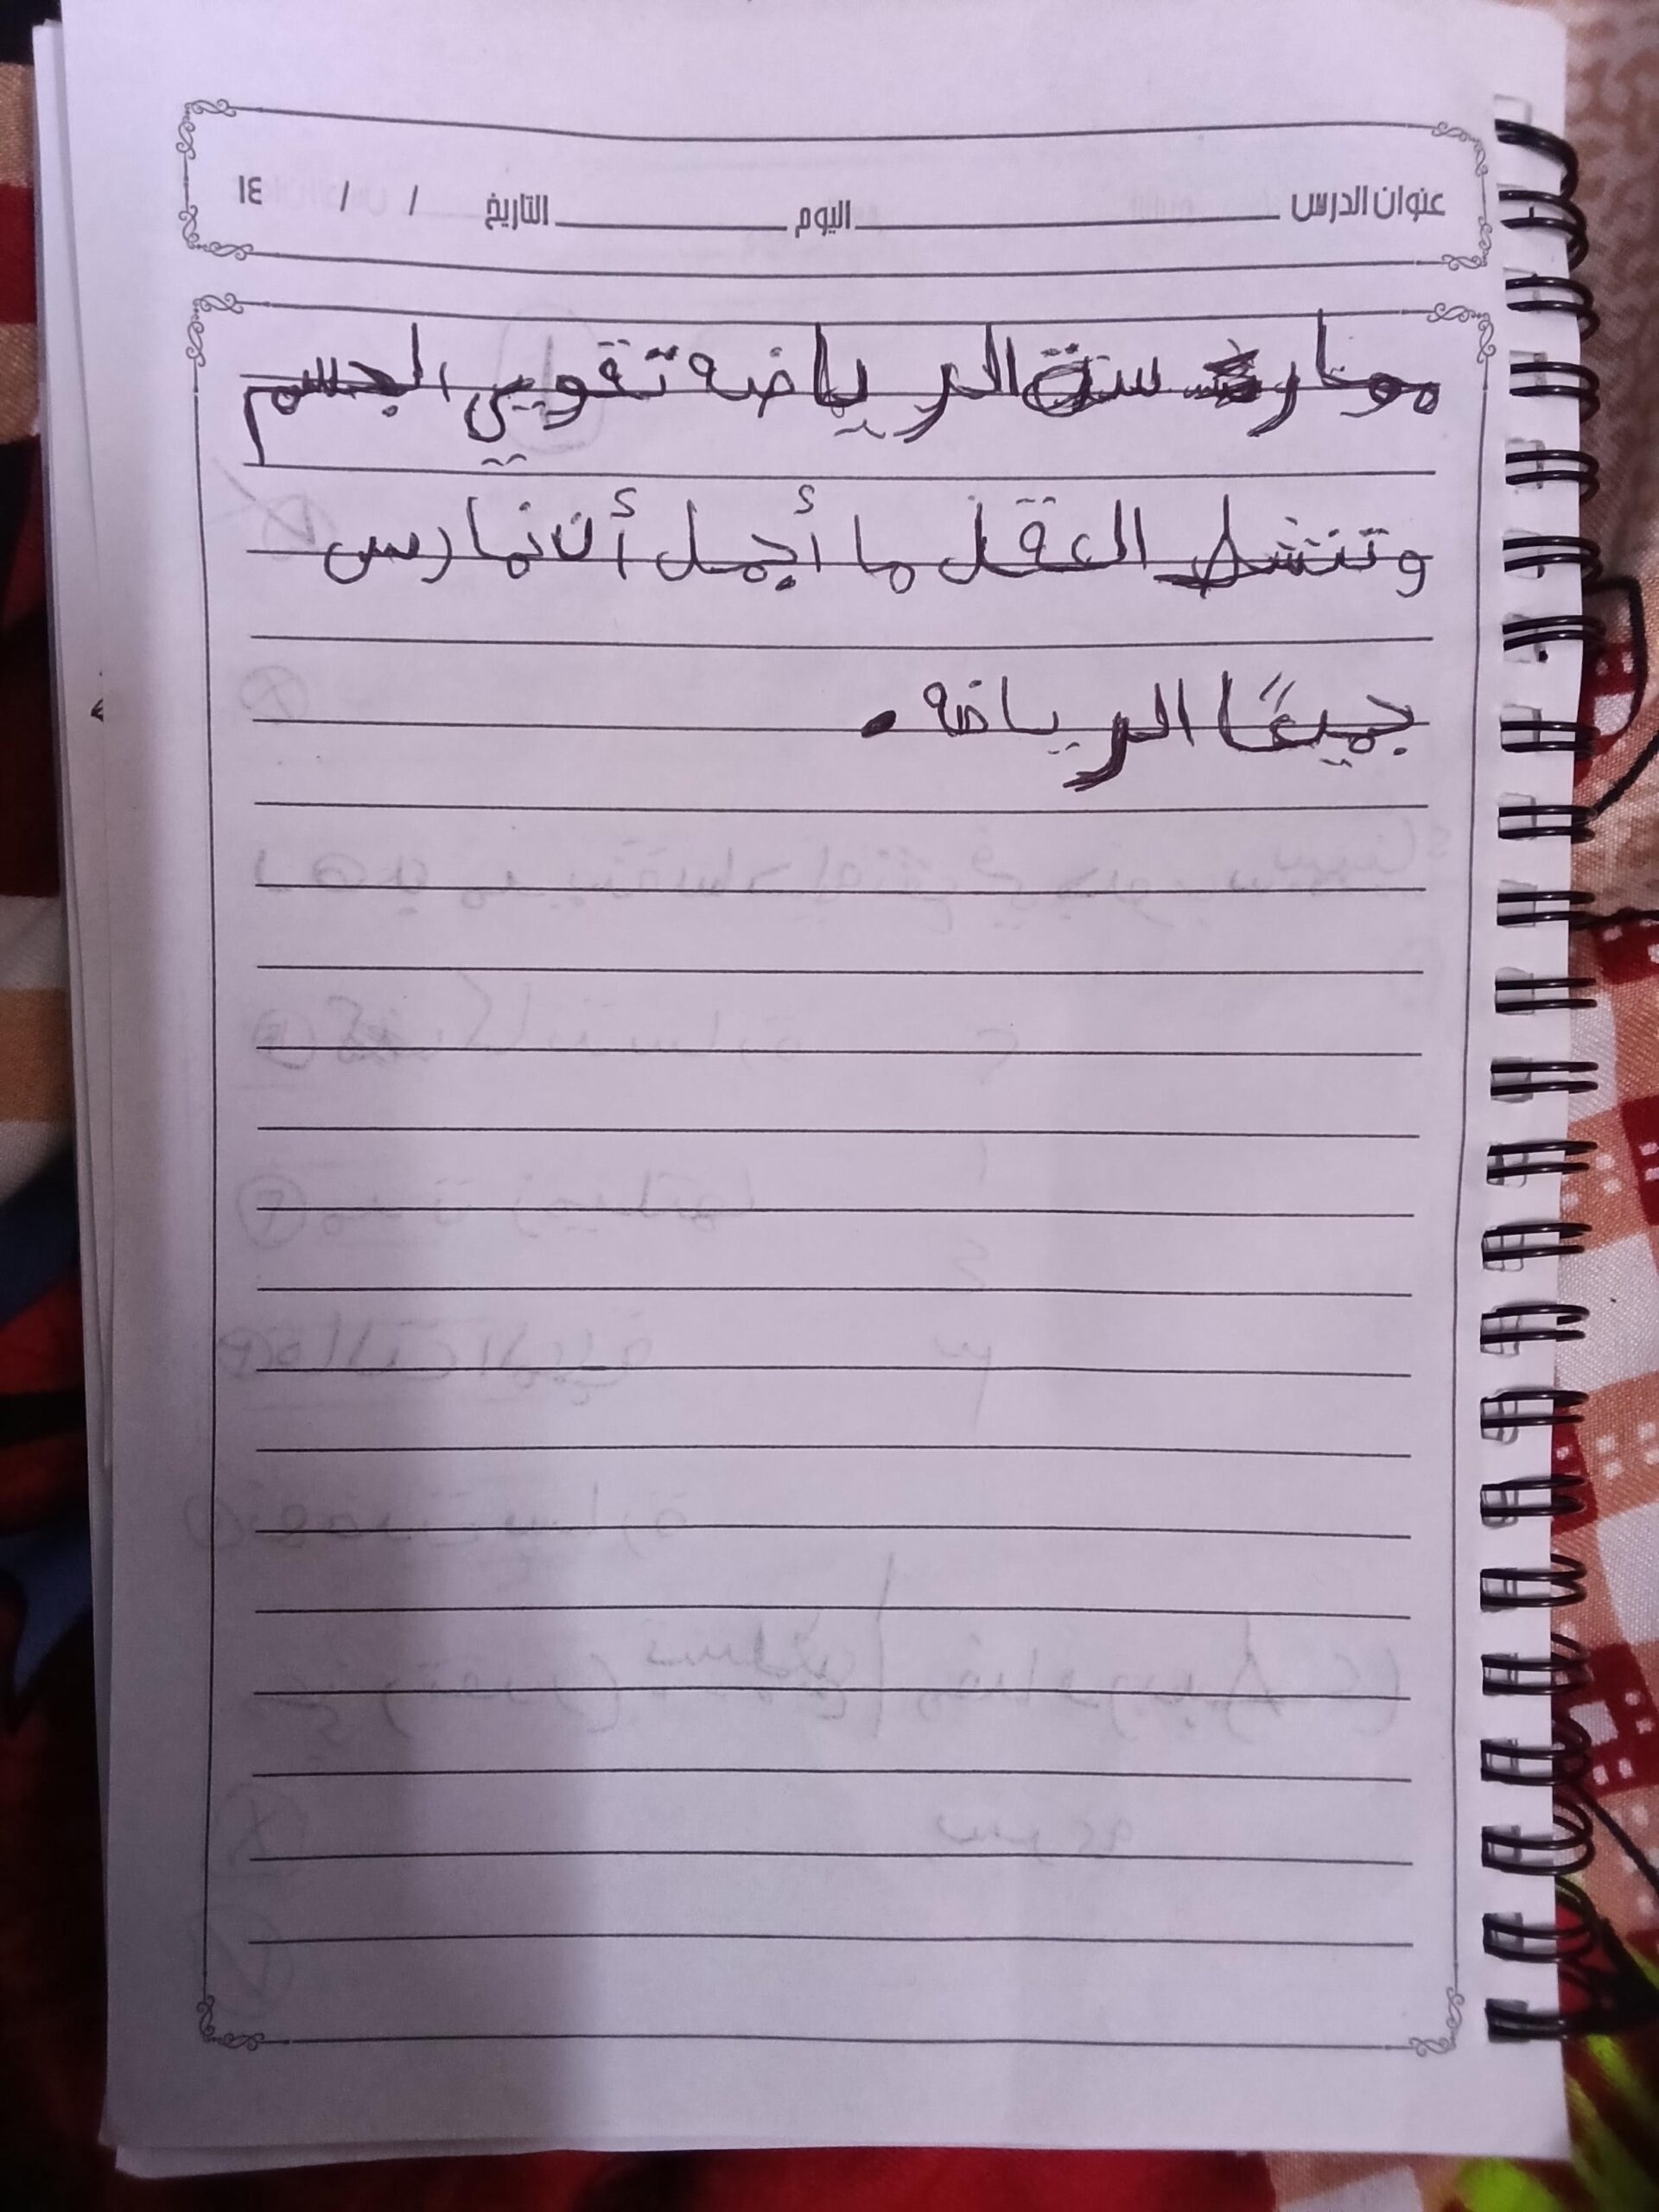 عنوان الدرس اليوم التاريخ / / ١٤
ممارسة الرياضه تقويي الجسم
وتنشط العقل ما أجمل أن نمارس
جميعًا الرياضه .